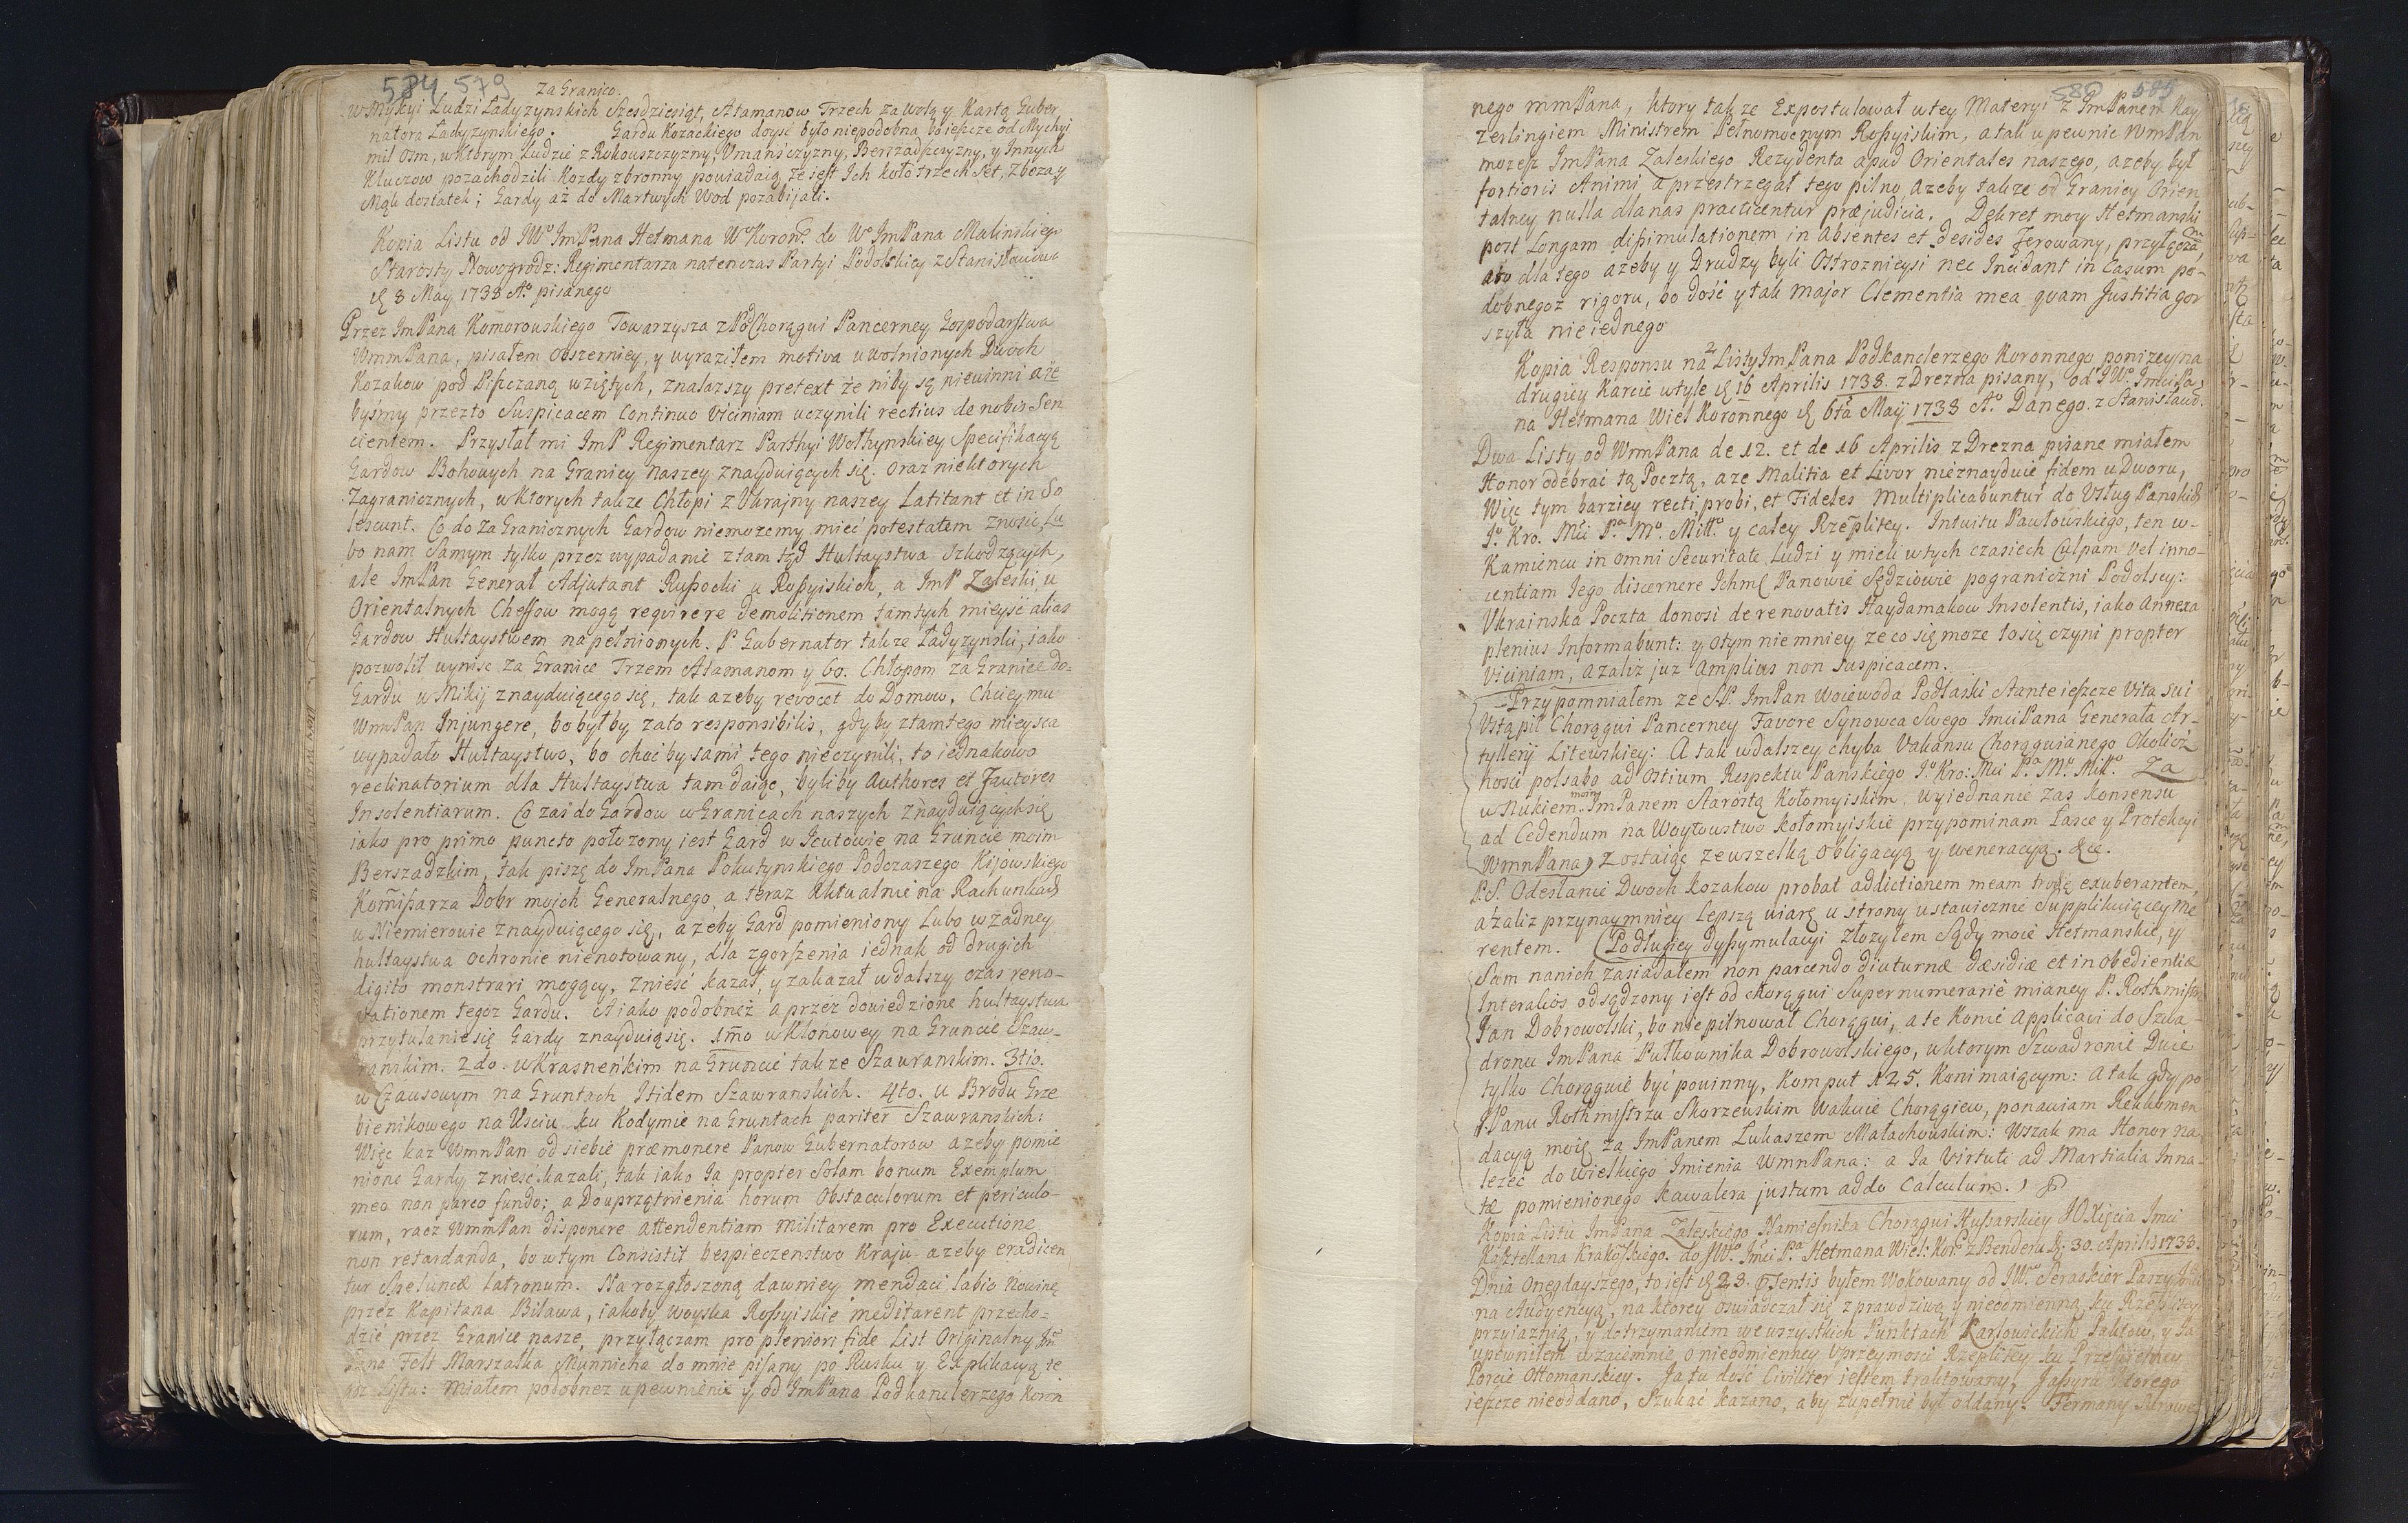 584 579
za Granico.
w Mykyi Ludzi Ładyzynskich Szesdziesiąt, Atamanow Trzech za wolą y Kartą Guber
natora Ładyzynskiego. Gardu Kozackiego dozyć było niepodobna, bo ieszcze od Mychyi
mil Osm, w ktorym Ludzie z Rohouszczyzny, Vmańszczyzny, Berszadszczyzny, y Innych
Kluczow pozachodzili Kozdy zbronny powiadaią ze iest Ich koło trzech Set, Zboza y
Mąk dostatek; Gardy aż do Martwych Wod pozabijali.
Kopia Listu od JWo ImPana Hetmana W Koronn. do Wo ImPana Malinskiego
Starosty Nowogrodz: Regimentarza natenczas Partyi Podolskiey z Stanisławowa
d 8 May 1738 Ao pisanego
Przez ImPana Komorowskiego Towarzysza z Pod Chorągui Pancerney Gospodarstwa
WmmPana, pisałem obszerniey, y wyraziłem motiva uwolnionych Dwoch
Kozakow pod Piszczaną wziętych, znalazszy pretext że niby są niewinni aże
byśmy przezto Suspicacem Continuo Viciniam uczynili rectius de nobis Sen
cientem. Przysłał mi ImP Regimentarz Parthyi Wołhynskiey Specifikacyą
Gardow Bohowych na Granicy naszey znayduiących się. oraz niektorych
Zagranicznych, w ktorych takze Chłopi z Ukrainy naszey Latitant et in So
lescunt. Co do za Granicznych Gardow niemozemy mieć potestatem znosic Lu
bo nam Samym tylko przez wypadanie ztam tąd Hultaystwa Szkodzących,
ale ImPan Generał Adjutant Rupocki u Rossyiskich, a ImP Zaleski u
Orientalnych Cheffow mogą requirere demolitionem tamtych mieysć alias
Gardow Hultaystwem napełnionych. P. Gubernator takze Ładyzynski, iako
pozwolił wynisc za Granice Trzem Atamanom y 60. Chłopom za Granice do-
Gardu w Mikij znayduiącego się, tak azeby revocet do Domow, Chciey mu
WmnPan Injungere, bo byłby zato responsibilis, gdyby ztamtego mieysca
wypadało Hultaystwo, bo choć by sami tego nieczynili, to iednakowo
reclinatorium dla Hultaystwa tam daiąc, byliby Authores et Fautores
Insolentiarum. Co zaś do Gardow w Granicach naszych znayduiących się
iako pro primo puncto położony iest Gard w Icutowie na Gruncie moim
Berszadzkim, tak piszę do ImPana Pokutynskiego Podczaszego Kijowskiego
Komissarza Dobr moich Generalnego, a teraz Aktualnie na Rachunkach
w Niemierowie znayduiącego się, azeby Gard pomieniony Lubo w żadney
hultaystwa ochronie nienotowany, dla zgorszenia iednak od drugich
digito monstrari mogący, znieść kazał, y zakazał w dalszy czas reno-
vationem tegoz Gardu. A iako podobnież a przez dowiedzione hultaystwa
przytulanie się Gardy znayduią się. 1mo w Klonowey na Gruncie Szaw-
ranskim. 2do. w Krasneńkim na Gruncie takze Szawranskim. 3tio.
w Czausowym na Gruntach Itidem Szawranskich. 4to. u Brodu Grze
bienikowego na Usciu ku Kodymie na Gruntach pariter Szawranskich:
Więc kaz WmnPan od siebie præmonere Panow Gubernatorow azeby pomie
nione Gardy znieść kazali, tak iako Ja propter Solam bonum Exemplum
meo non parco fundo; a Do uprzątnienia horum Obstaculorum et periculo-
rum, racz WmnPan disponere attendentiam militarem pro Executione
non retardanda, bo wtym Consistit bespieczenstwo Kraju azeby eradicen
tur Speluncæ latronum. Na rozgłoszoną dawniey mendaci labio Nowinę
przez Kapitana Bilawa, iakoby woyska Rossyiskie meditarent przecho-
dzić przez Granice nasze, przyłączam pro pleniori fide List Originalny Jm
Pana Felt Marszałka Munnicha do mnie pisany po Rusku y Explikacyą te
goz Listu: Miałem podobnez upewnienie y od ImPana Podkanclerzego Koron
580 585
nego mmPana, ktory takze Expostulował w tey Materyi z ImPanem Kay
zerlingiem Ministrem Pełnomocnym Rossyiskim, a tak upewnic WmPan
mozesz ImPana Zaleskiego Rezydenta apud Orientales naszego, azeby był
fortioris Animi, a przestrzegał tego pilno azeby takze od Granicy Orien
talney nulla dla nas practicentur præjudicia. Dekret moy Hetmanski
post Longam dissimulationem in Absentes et desides Ferowany, przyłączam,
a to dla tego azeby y Drudzy byli Ostroznieysi nec Incidant in Casum po-
dobnegoz rigoru, bo dość y tak major Clementia mea quam Justitia gor
szyła nieiednego
Kopia Responsu na 2 Listy ImPana Podkanclerzego Koronnego ponizey na
drugiey Karcie w tyle d 16 Aprilis 1738. z Drezna pisany, od JWo ImciPa-
na Hetmana Wiel Koronnego d 6ta Maij 1738 Ao Danego z Stanisławo.
Dwa Listy od WmPana de 12. et de 16 Aprilis z Drezna pisane miałem
Honor odebrać tą Pocztą, a ze Malitia et Livor nieznayduie fidem u Dworu,
Więc tym barziey recti, probi, et Fideles Multiplicabuntur do Usług Panskich
Jo Kro. Mci Pa Mo Miłło y całey Rzeplitey. Intuitu Pawłowskiego, ten w-
Kamiencu in omni Securitate Ludzi y mieli w tych czasiech Culpam vel inno-
centiam Jego discernere Ichm Panowie Sędziowie pograniczni Podolscy:
Vkrainska Poczta donosi de renovatis Haydamakow Insolentis, iako Annexa
plenius Informabunt: y otym niemniey ze co się moze to się czyni propter
Viciniam, azaliż juz Amplius non Suspicacem.
Przypomniałem ze S.P. ImPan Woiewoda Podlaski stante ieszcze Vita sui
Ustąpił Chorągui Pancerney Favore Synowca Swego ImciPana Generała Ar-
tyllerij Litewskiey: A tak w dalszey chyba Vakansu Chorąguianego Okolicz
nosci polsabo ad ostium Respektu Panskiego Jo Kro: Mci Pa Mo Miłło. Za
wnukiem moim ImPanem Starostą Kołomyiskim, wyiednanie zas konsensu
ad Cedendum na Woytowstwo kołomyiskie przypominam Łasce y Protekcyi
WmnPana, zostaiąc ze wszelką Obligacyą y weneracyą. &c.
P.S. Odesłanie Dwoch kozakow probat addictionem meam exuberantem,
ażaliz przynaymniey Lepszą wiarę u strony ustawicznie Supplikuiącey me
rentem. (Podługiey dyssymulacyi złozyłem Sądy moie Hetmanskie, y
Sam nanich zasiadałem non parcendo diuturnæ desidiæ et inobedientiæ
Interalios odsądzony iest od chorągui Supernumerarie mianey P. Rothmistrz
Jan Dobrowolski, bo nie pilnował Chorągui, a te konie applicavi do Szwa-
dronu ImPana Pułkownika Dobrowolskiego, w ktorym Szwadronie Dwie
tylko Chorągwie być powinny, Komput 125. koni maiącym: A tak gdy po
P.Panu Rothmistrzu Skorzewskim Wakuie Chorągiew, ponawiam Rekkomen
dacyą moię za ImPanem Łukaszem Małachowskim: Wszak ma Honor na-
lezeć do wielkiego Imienia WmnPana: a Ja Virtuti ad Martialia Inna-
tæ pomienionego kawalera justum addo Calculum.)
Kopia Listu ImPana Zaleskiego Namiesnika Chorągui Hussarskiey JOXięcia Imci
Kasztellana Krakoskiego. do JWo Imci Pa Hetmana Wiel: Kor. z Benderu d: 30. Aprilis 1738.
Dnia Onegdayszego, to iest d 23. psentis byłem Wokowany od JWo Seraskier Paszy
na Audyencyą, na ktorey oswiadczał się z prawdziwą y nieodmienną ku Rzeplitey
przyiaznią, y dotrzymaniem we wszystkich Punktach Karłowickich Paktow, y Ja
upewniłem wzaiemnie o nieodmienney Uprzeymosci Rzeplitey ku Przeswietney
Porcie Ottomanskiey. Ja tu dość Civiliter iestem traktowany, Jassyra ktorego
ieszcze nieoddano, Szukać kazano, aby zupełnie był oddany. Fermany Surowe